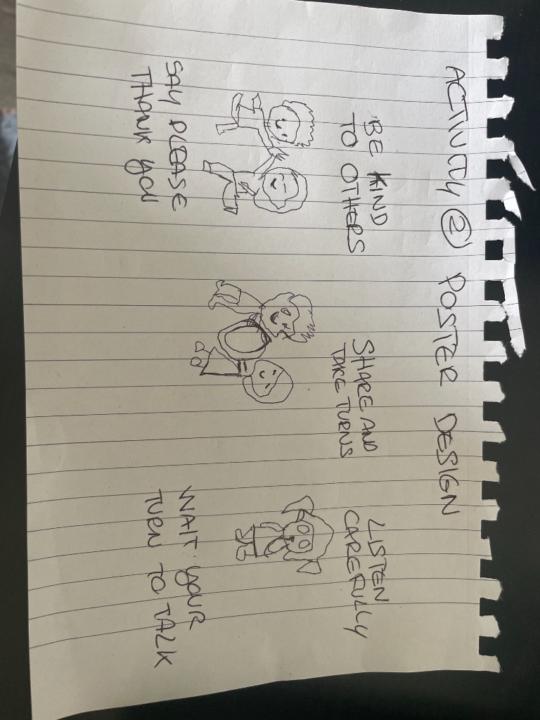 ACTIVITY 2 POSTER DESIGN
BE KIND
TO OTHERS
SHARE AND
TAKE TURNS
LISTEN
CAREFULLY
SAY PLEASE
THANK YOU
WAIT YOUR
TURN TO TALK